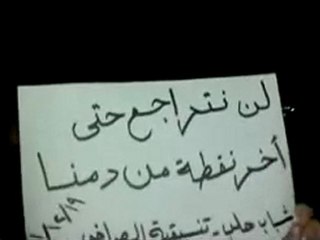 لن نتراجع حتى
أخر نقطة من دمنا
شباب حلب - تنسيقية